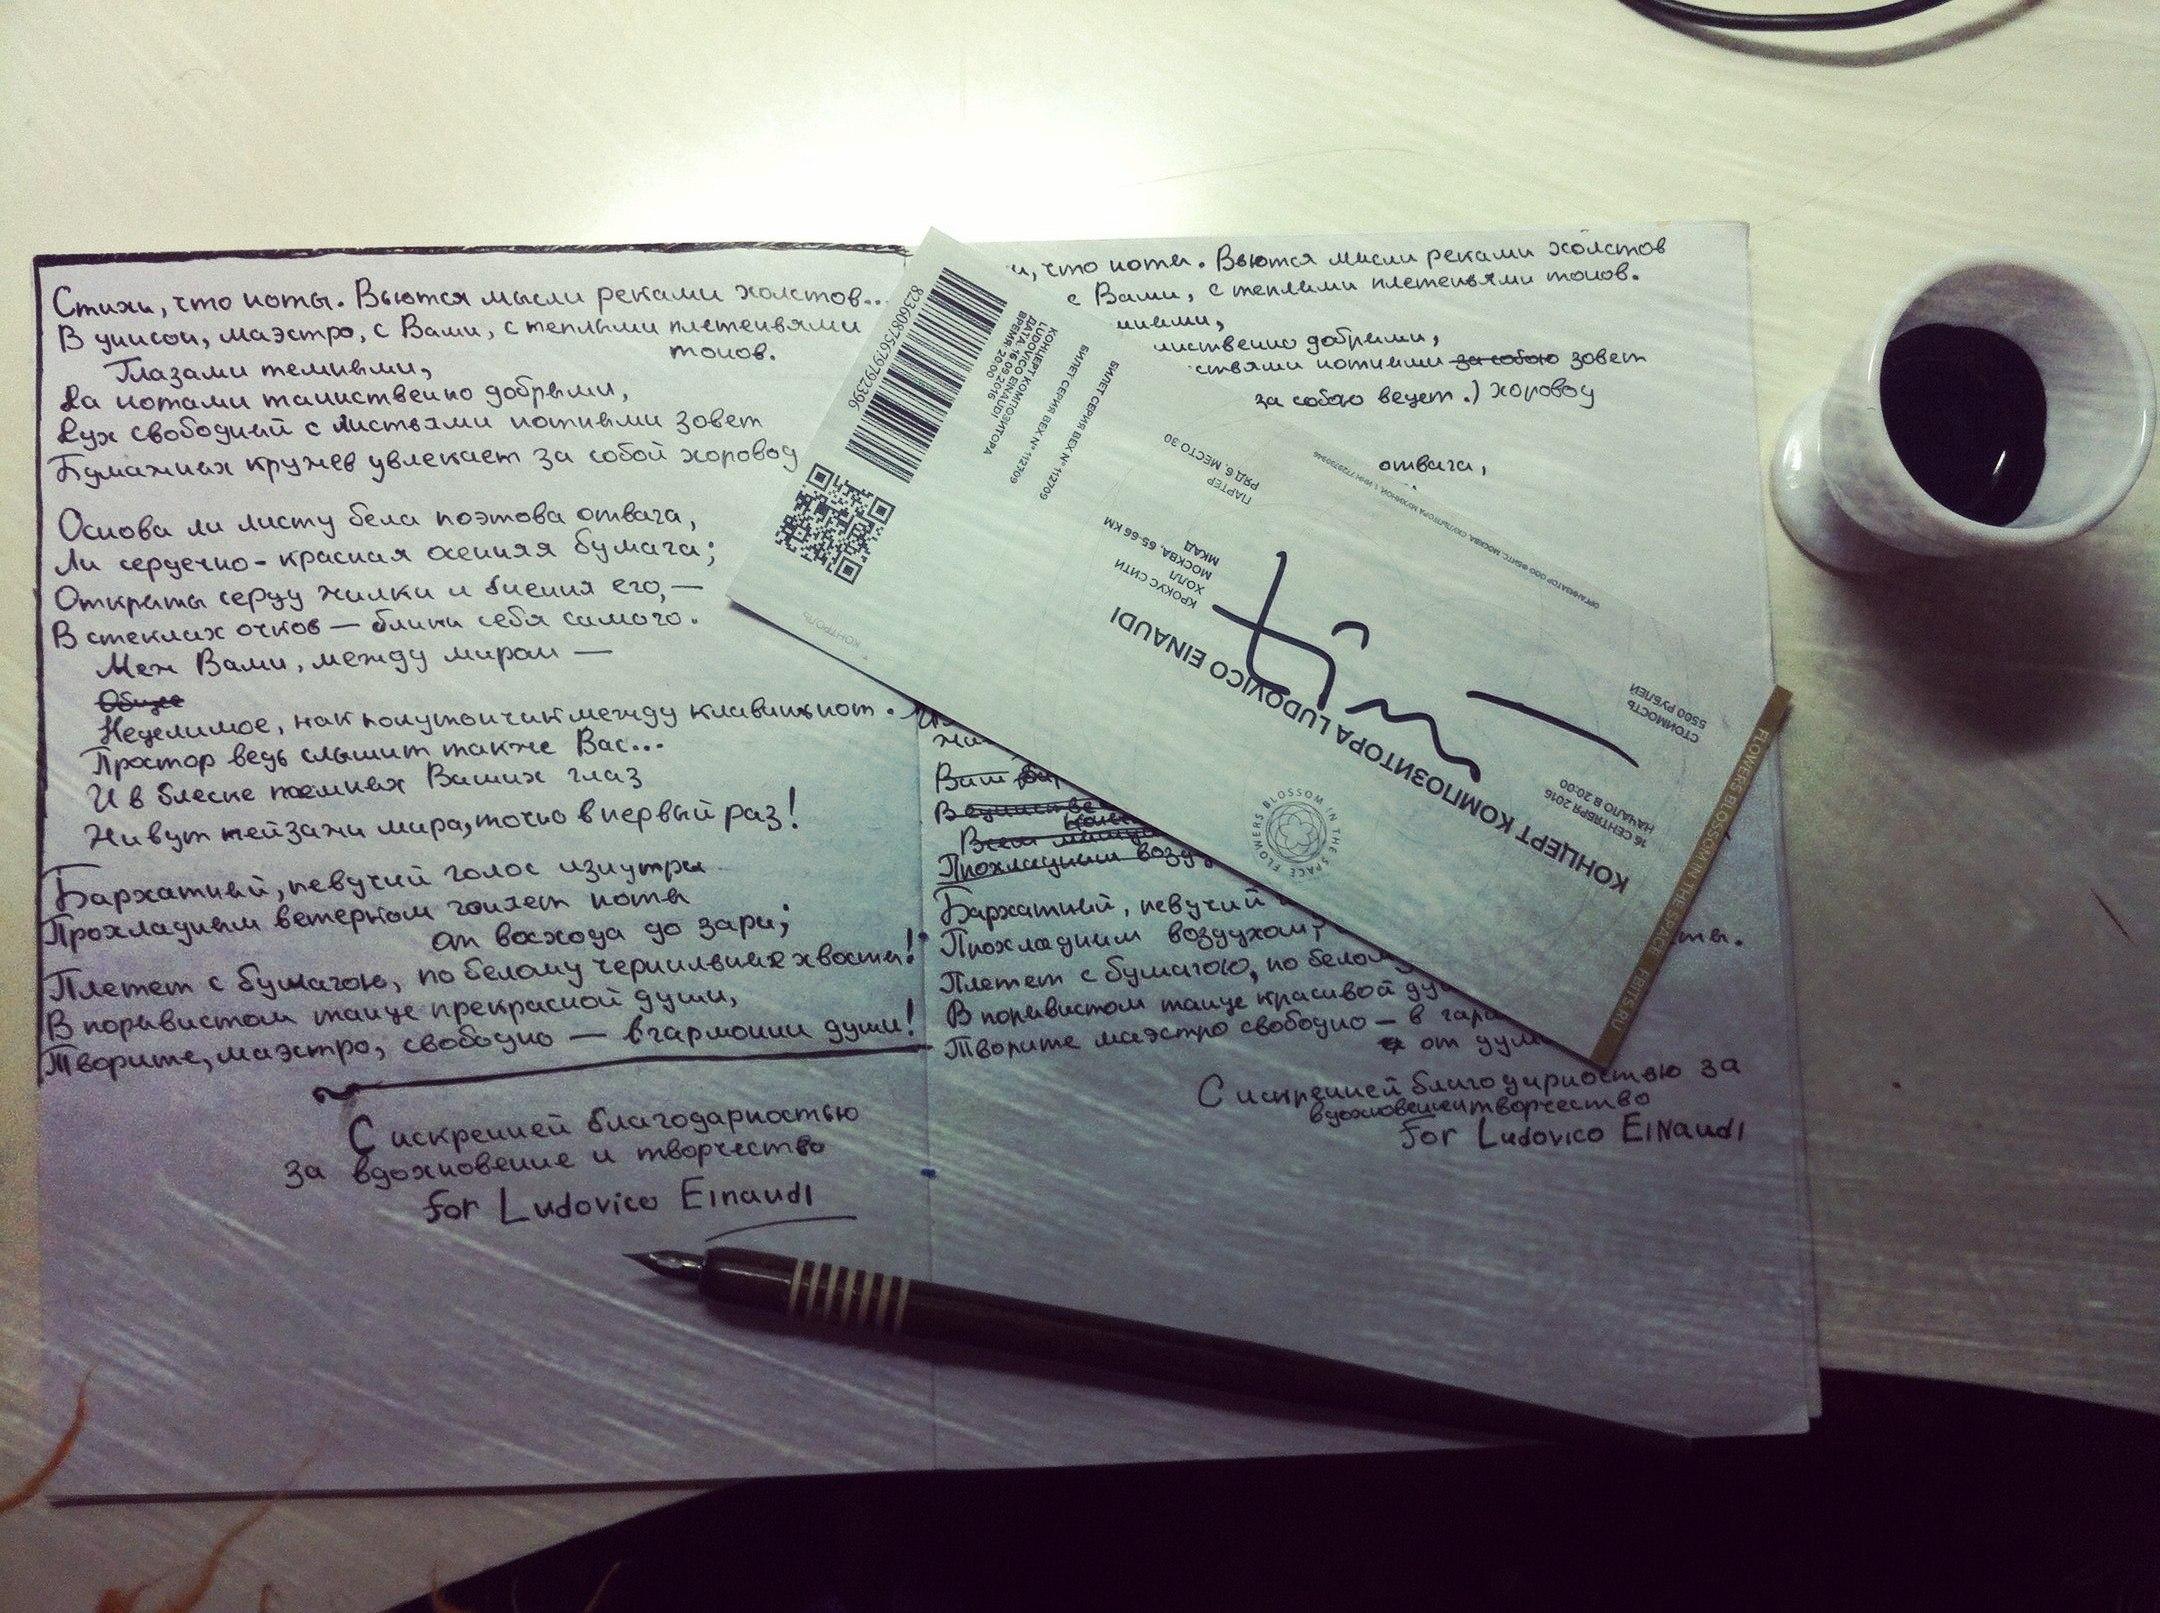 Стихи, что ноты. Вьются мысли реками холстов...
В унисон, маэстро, с Вами, с теплыми плетеньями
тонов.
Глазами темными,
Да нотами таинственно добрыми,
Дух свободный с листьями нотными зовет
Бумажных кружев увлекает за собой хоровод
Основа ли листу бела поэтова отвага,
Ли сердечно-красная осенняя бумага;
Открыты серду жилки и биения его, —
В стеклах очков — блики себя самого.
Меж Вами, между миром —
Общее
Неделимое, как полутончик между клавиш нот.
Простор ведь слышит также Вас...
И в блеске темных Ваших глаз
Живут пейзажи мира, точно в первый раз!
Бархатный, певучий голос изнутри
Прохладным ветерком гоняет ноты
от восхода до зари;
Плетет с бумагою, по белому чернильных хвосты!
В порывистом танце прекрасной души,
Творите, маэстро, свободно — в гармонии души!
С искренней благодарностью
за вдохновение и творчество
for Ludovico Einaudi
что ноты. Вьются мысли реками холстов
с Вами, с теплыми плетеньями тонов.
добрыми,
нотными за собою зовет
за собою ведет.) хоровод
отвага,
Ваш
Прохладным
Бархатный, певучий
Прохладным воздухом,
Плетет с бумагою, по
В порывистом танце красивой
Творите маэстро свободно — в
от
С искренней благодарностью за
вдохновение творчество
for Ludovico EINaudi
82360875679792396
КОНЦЕРТ КОМПОЗИТОРА
LUDOVICO EINAUDI
ДАТА: 16.09.2016
ВРЕМЯ: 20:00
БИЛЕТ СЕРИЯ BEX N° 112709
БИЛЕТ СЕРИЯ BEX N° 112709
КОНТРОЛЬ
КОНЦЕРТ КОМПОЗИТОРА LUDOVICO EINAUDI
16 СЕНТЯБРЯ 2016
НАЧАЛО В 20:00
СТОИМОСТЬ
5500 РУБЛЕЙ
КРОКУС СИТИ
ХОЛЛ
МОСКВА, 65-66 КМ
МКАД
ПАРТЕР
РЯД 6, МЕСТО 30
FLOWERS BLOSSOM IN THE SPACE
FLOWERS BLOSSOM IN THE SPACE FBITS.RU